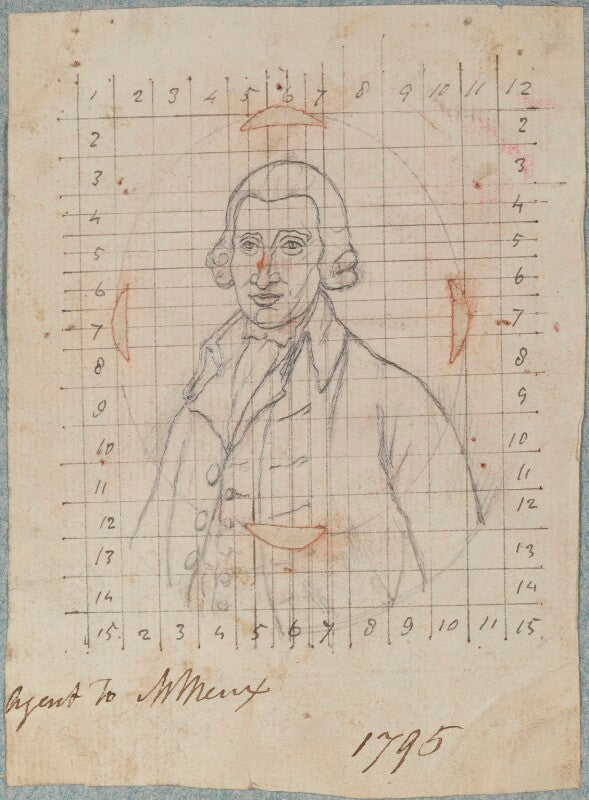 1 2 3 4 5 6 7 8 9 10 11 12
2 2
3 3
4 4
5 5
6 6
7 7
8 8
9 9
10 10
11 11
12 12
13 13
14 14
15 2 3 4 5 6 7 8 9 10 11 15
Agent To Mr Meux
1795